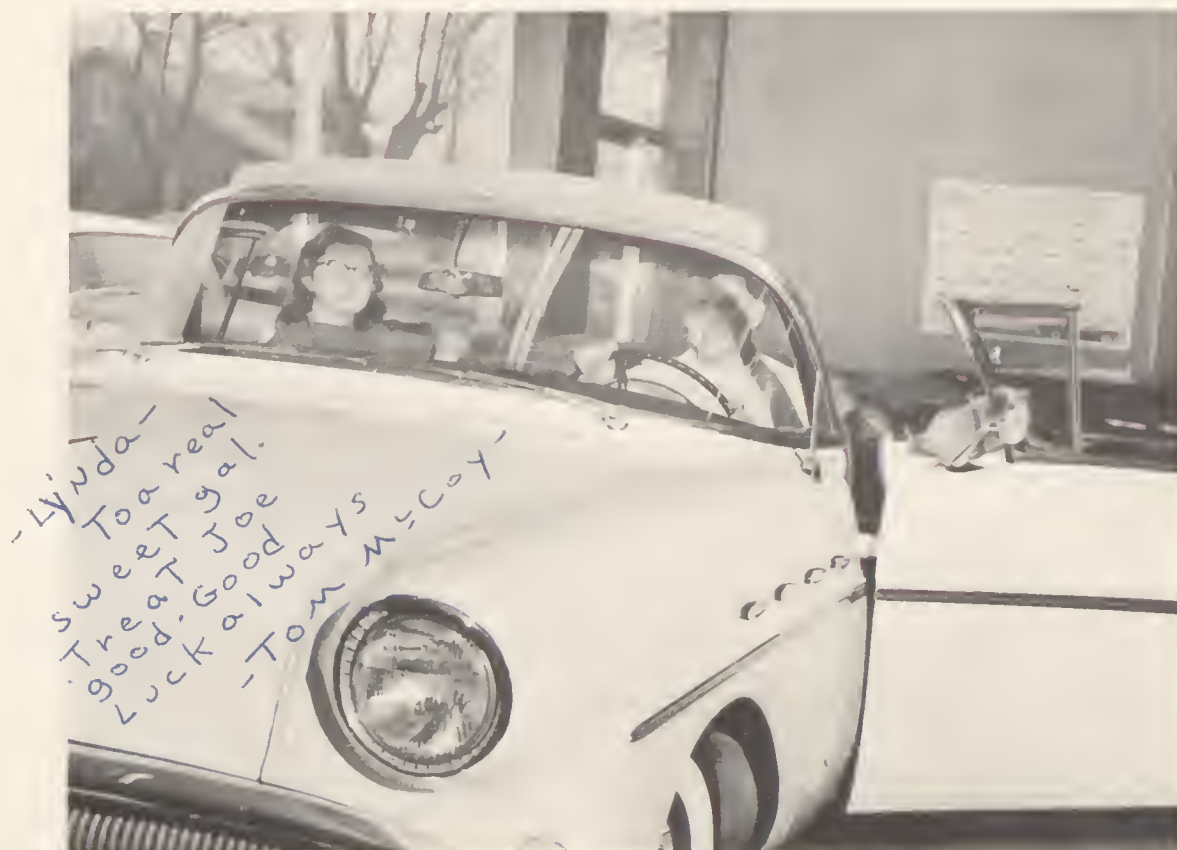 -Lynda-
To a real
sweet gal.
Treat Joe
good. Good
Luck always
-Tom McCoy-